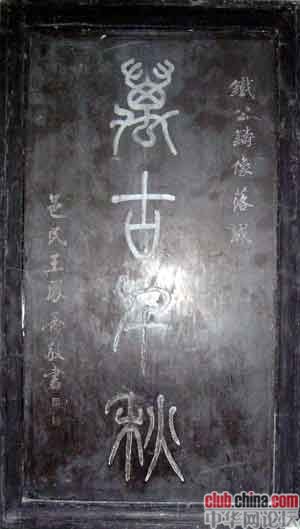 鐵公鑄像落成
萬古千秋
邑民王 敬書
club.china.com
中华网论坛